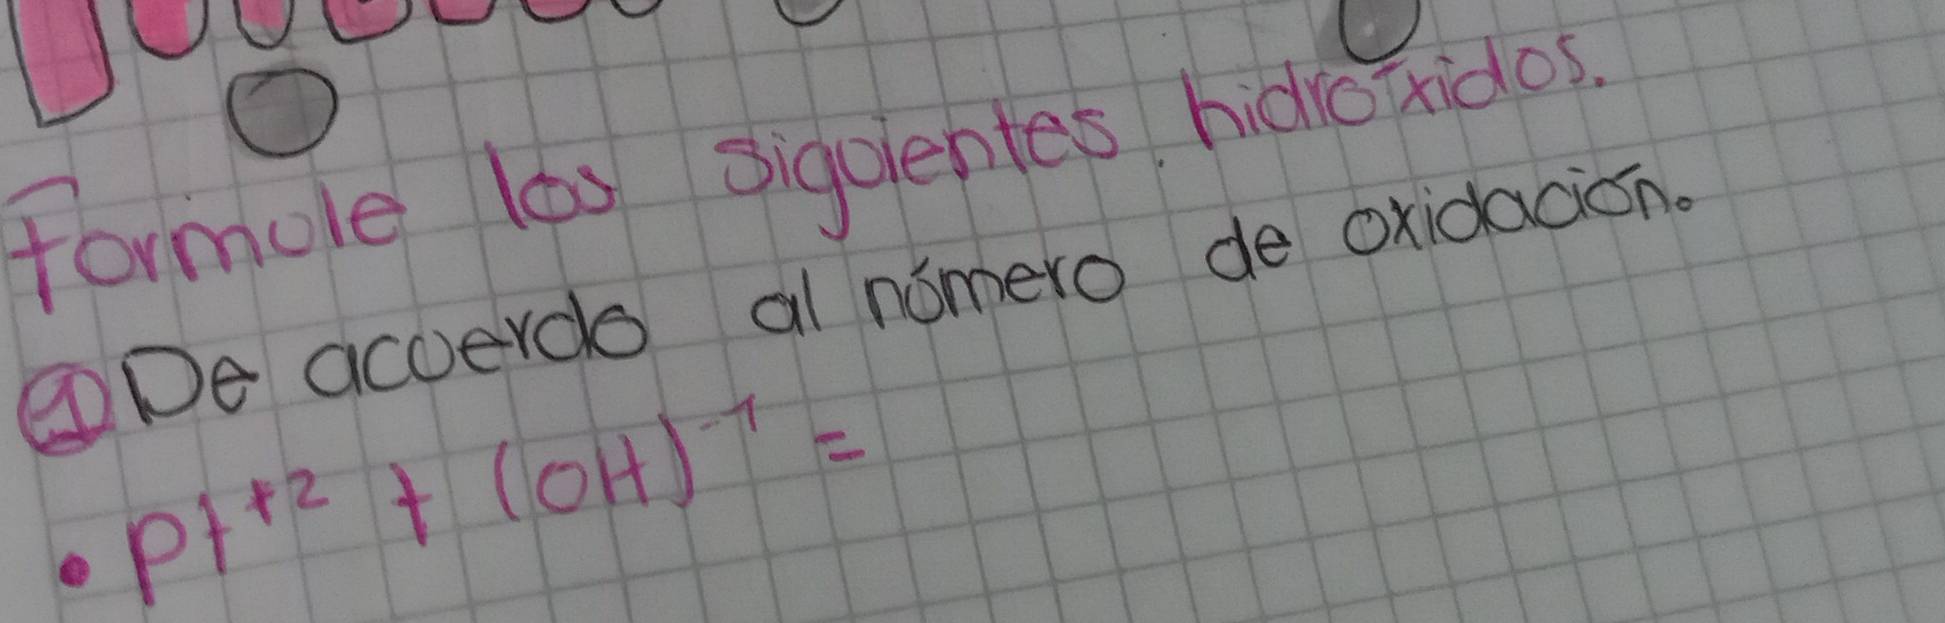 Formule los siguientes hidróxidos.
① De acuerdo al número de oxidación.
• Pt⁺² + (OH)⁻¹ =